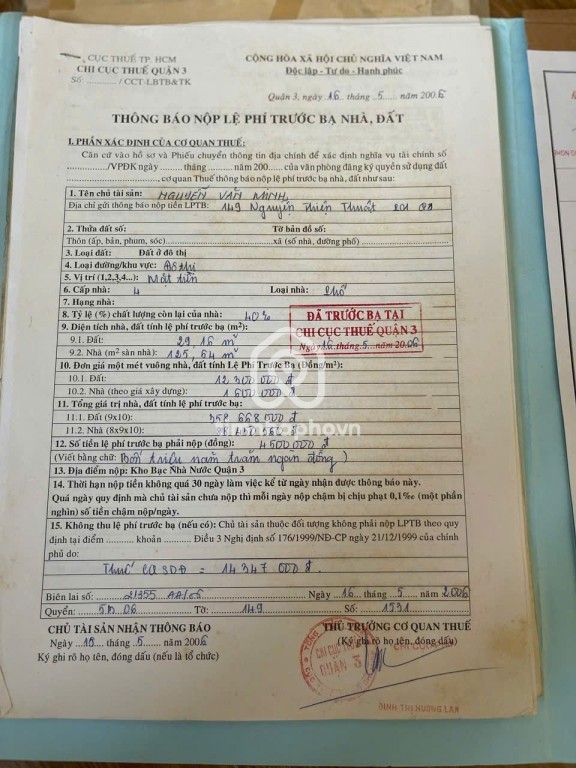 CỤC THUẾ TP. HCM
CHI CỤC THUẾ QUẬN 3
Số ........../CCT-LBTB&TK
CỘNG HÒA XÃ HỘI CHỦ NGHĨA VIỆT NAM
Độc lập - Tự do - Hạnh phúc
Quận 3, ngày 16 tháng 5 năm 2006
THÔNG BÁO NỘP LỆ PHÍ TRƯỚC BẠ NHÀ, ĐẤT
I. PHẦN XÁC ĐỊNH CỦA CƠ QUAN THUẾ:
Căn cứ vào hồ sơ và Phiếu chuyển thông tin địa chính để xác định nghĩa vụ tài chính số
............/VPĐK ngày ........ tháng ......... năm 200...... của văn phòng đăng ký quyền sử dụng đất
......................, cơ quan Thuế thông báo nộp lệ phí trước bạ nhà, đất như sau:
1. Tên chủ tài sản: NGUYỄN VĂN MINH
Địa chỉ gửi thông báo nộp tiền LPTB: 149 Nguyễn Thiện Thuật
2. Thửa đất số: Tờ bản đồ số:
Thôn (ấp, bản, phum, sóc) ........................ xã (số nhà, đường phố) ........................
3. Loại đất: Đất ở đô thị
4. Loại đường/khu vực: Đô thị
5. Vị trí (1,2,3,4...): Mặt tiền
6. Cấp nhà: 4 Loại nhà: phố
7. Hạng nhà:
8. Tỷ lệ (%) chất lượng còn lại của nhà: 40%
ĐÃ TRƯỚC BẠ TẠI
CHI CỤC THUẾ QUẬN 3
Ngày 16 tháng 5 năm 2006
9. Diện tích nhà, đất tính lệ phí trước bạ (m²):
9.1. Đất: 29,16 m²
9.2. Nhà (m² sàn nhà): 125,64 m²
10. Đơn giá một mét vuông nhà, đất tính Lệ Phí Trước Bạ (Đồng/m²):
10.1. Đất: 12 300 000 đ
10.2. Nhà (theo giá xây dựng): 1 600 000 đ
11. Tổng giá trị nhà, đất tính lệ phí trước bạ:
11.1. Đất (9x10): 358 668 000 đ
11.2. Nhà (8x9x10):
12. Số tiền lệ phí trước bạ phải nộp (đồng): 4 500 000 đ
(Viết bằng chữ: Bốn triệu năm trăm ngàn đồng)
13. Địa điểm nộp: Kho Bạc Nhà Nước Quận 3
14. Thời hạn nộp tiền không quá 30 ngày làm việc kể từ ngày nhận được thông báo này.
Quá ngày quy định mà chủ tài sản chưa nộp thì mỗi ngày nộp chậm bị chịu phạt 0,1‰ (một phần
nghìn) số tiền chậm nộp/ngày.
15. Không thu lệ phí trước bạ (nếu có): Chủ tài sản thuộc đối tượng không phải nộp LPTB theo quy
định tại điểm .......... khoản .......... Điều 3 Nghị định số 176/1999/NĐ-CP ngày 21/12/1999 của chính
phủ do:
Thuế CQSDĐ = 14 347 000 đ.
Biên lai số: 21355 AA/05 Ngày 16 tháng 5 năm 2006
Quyển: 5B 06 Tờ: 149 Số: 1531
CHỦ TÀI SẢN NHẬN THÔNG BÁO
Ngày 16 tháng 5 năm 2006
Ký ghi rõ họ tên, đóng dấu (nếu là tổ chức)
THỦ TRƯỞNG CƠ QUAN THUẾ
(Ký ghi rõ họ tên, đóng dấu)
QUẬN 3
ĐINH THỊ HƯƠNG LAN